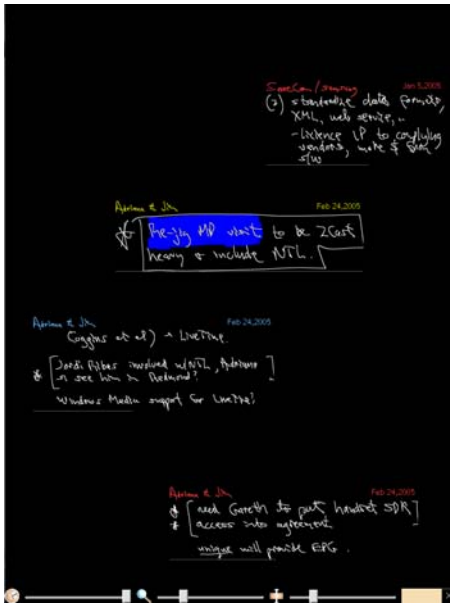 Jan 5,2005
(2) standardize data formats,
XML, web service, ..
vendors, make
s/w
Adriana & Jim Feb 24,2005
Re-jig MD visit to be 2Cast
heavy & include NTL.
Adriana & Jim Feb 24,2005
Goggins et al) → LiveTime.
[Jordi Ribas involved w/NTL, Adriana
see him in Redmond?]
Windows Media support for LiveTime?
Adriana & Jim Feb 24,2005
[need Gareth to put handset SDR
access into agreement]
unique will provide EPG.